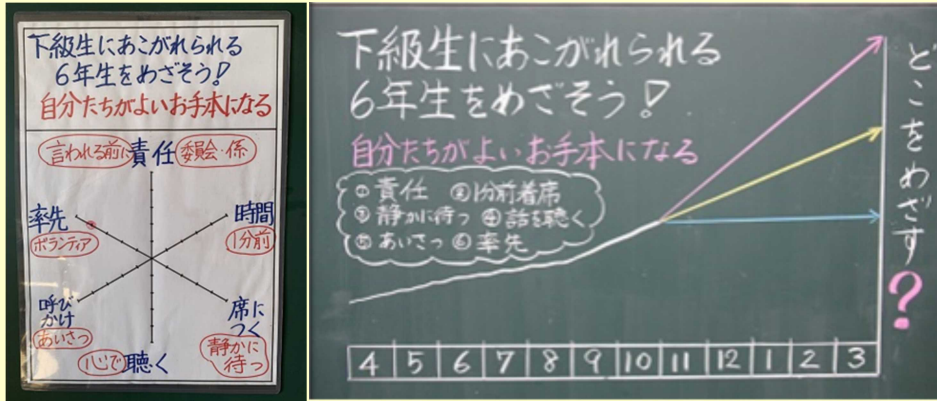 下級生にあこがれられる
6年生をめざそう!
自分たちがよいお手本になる
言われる前に 責任 委員会・係
率先 時間
ボランティア 1分前
呼び
かけ
あいさつ
席に
つく
静かに
待つ
心で 聴く
下級生にあこがれられる
6年生をめざそう!
自分たちがよいお手本になる
① 責任 ② 1分前着席
③ 静かに待つ ④ 話を聴く
⑤ あいさつ ⑥ 率先
どこをめざす?
4 5 6 7 8 9 10 11 12 1 2 3